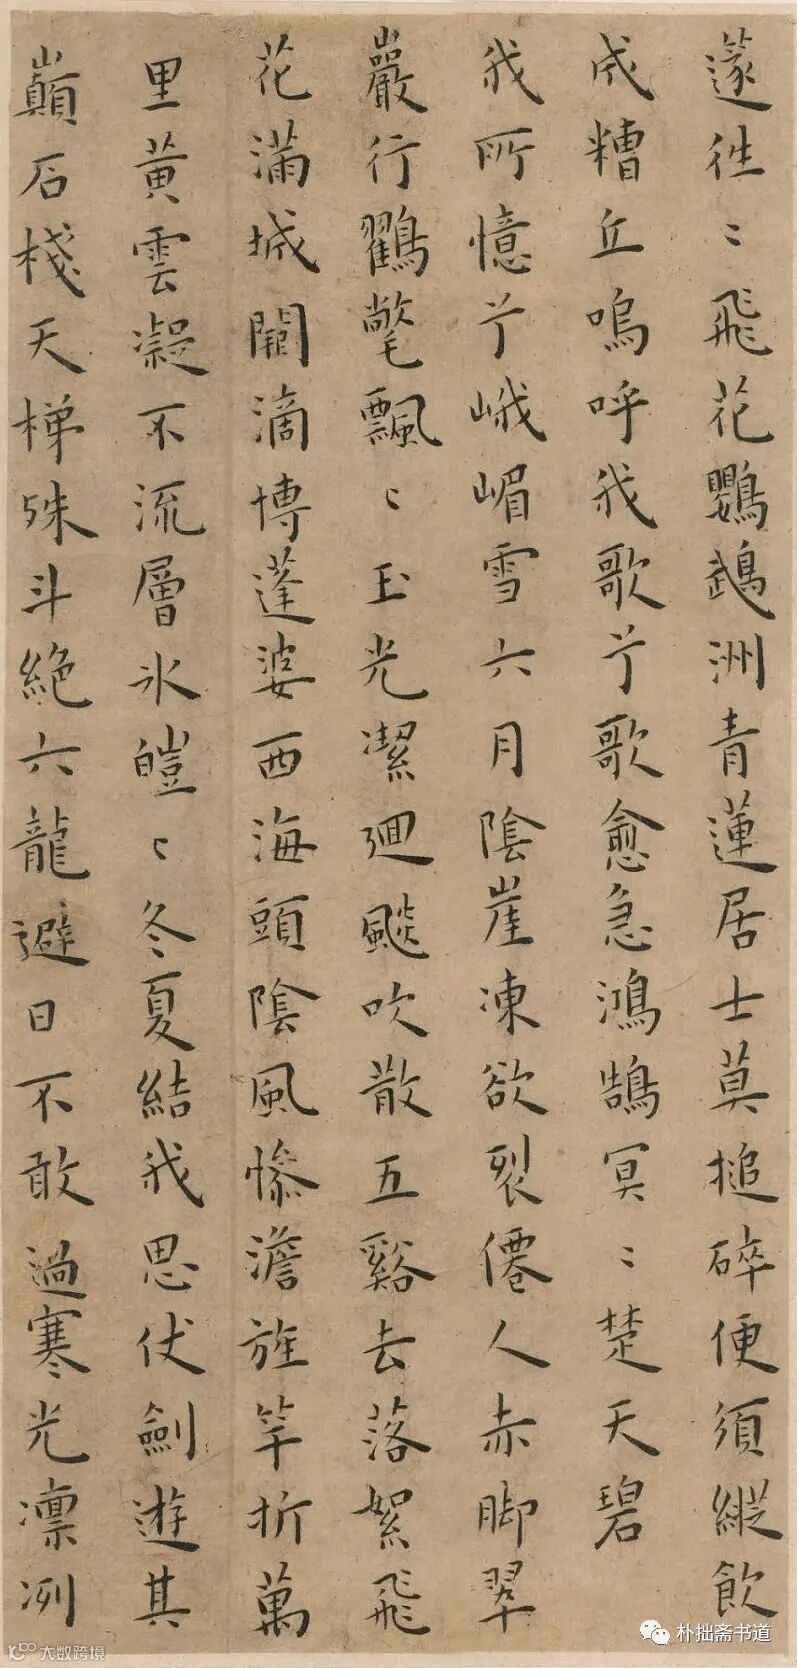 蓬徃〻飛花鸚鵡洲青蓮居士莫搥碎便須縱飲
成糟丘嗚呼我歌兮歌愈急鴻鵠冥〻楚天碧
我所憶兮峨嵋雪六月陰崖凍欲裂僊人赤脚翠
巖行鸛氅飄〻玉光潔廻颷吹散五谿去落絮飛
花滿城闕滴博蓬婆西海頭陰風慘澹旌竿折萬
里黃雲凝不流層氷皚〻冬夏結我思伏劍遊其
巔石棧天梯殊斗絕六龍避日不敢過寒光凛冽
朴拙斋书道
大数跨境